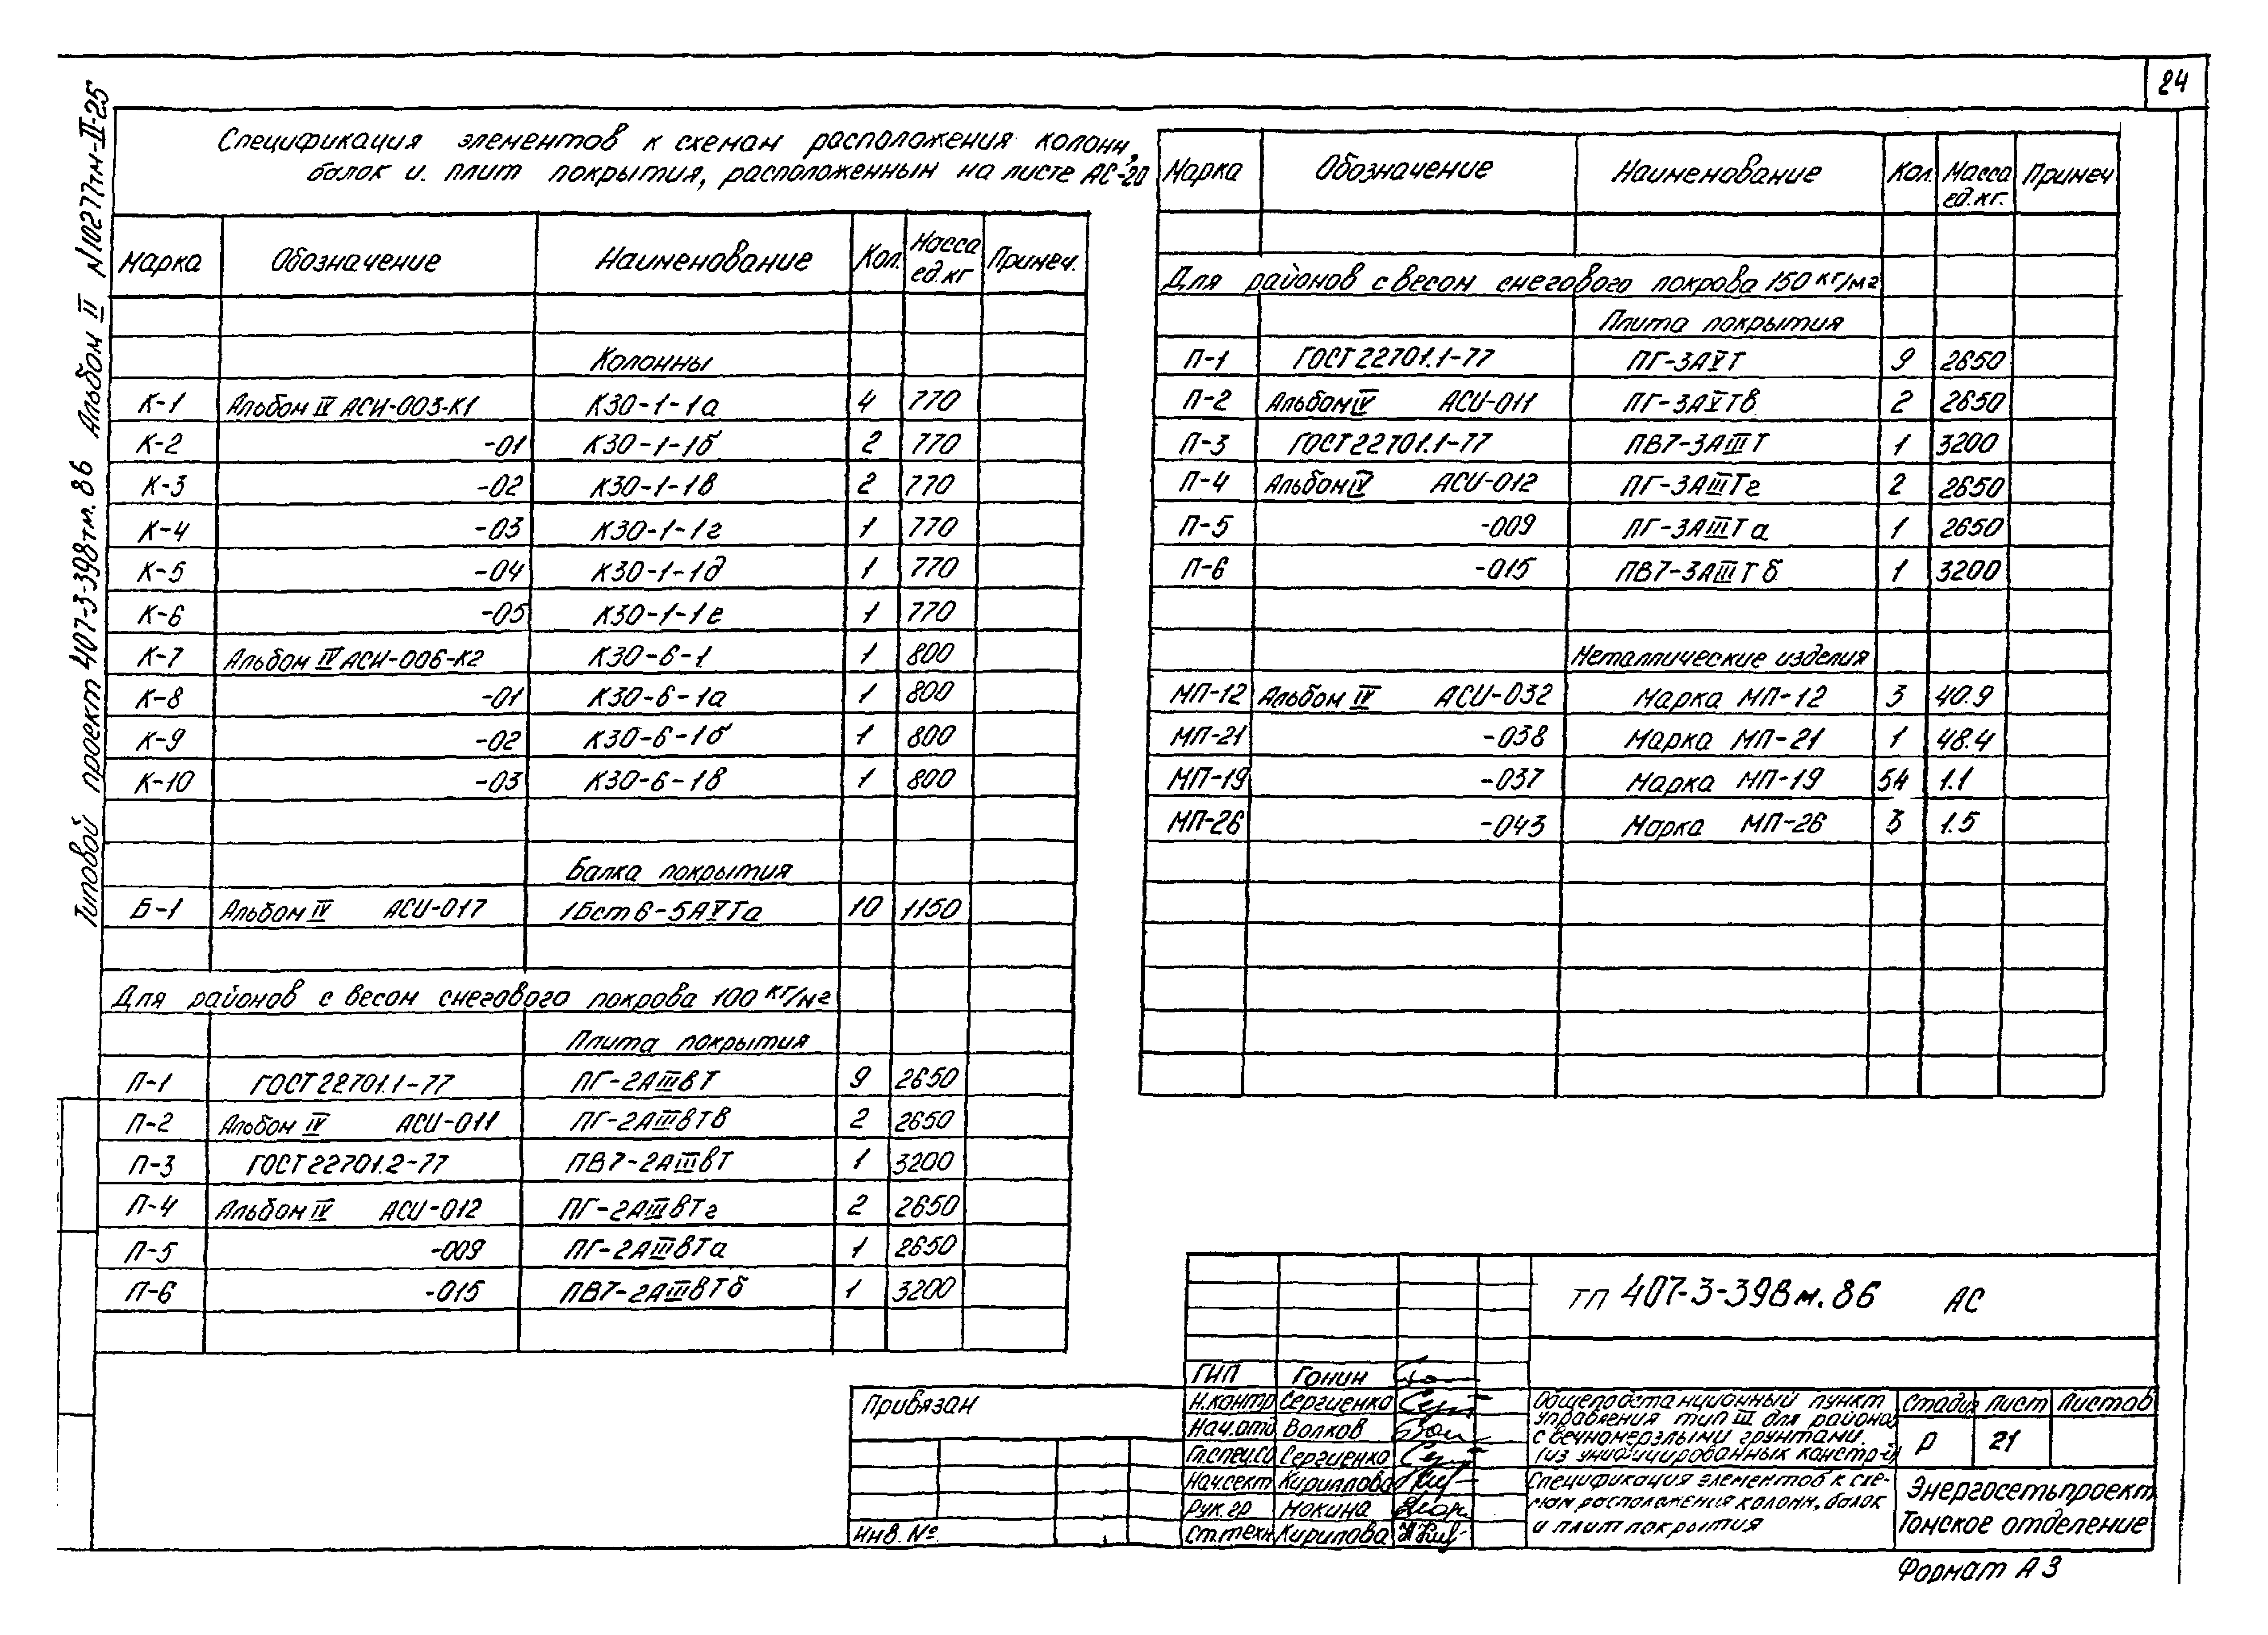 24
Типовой проект 407-3-398тм.86 Альбом II N10277тм-II-25
Спецификация элементов к схемам расположения колонн,
балок и плит покрытия, расположенным на листе АС-20
Марка Обозначение Наименование Кол. Масса ед.кг Примеч.
Колонны
К-1 Альбом IV АСИ-003-К1 К30-1-1а 4 770
К-2 -01 К30-1-1б 2 770
К-3 -02 К30-1-1в 2 770
К-4 -03 К30-1-1г 1 770
К-5 -04 К30-1-1д 1 770
К-6 -05 К30-1-1е 1 770
К-7 Альбом IV АСИ-006-К2 К30-6-1 1 800
К-8 -01 К30-6-1а 1 800
К-9 -02 К30-6-1б 1 800
К-10 -03 К30-6-1в 1 800
Балка покрытия
Б-1 Альбом IV АСИ-017 1Бст6-5АVТа 10 1150
Для районов с весом снегового покрова 100 кг/м2
Плита покрытия
П-1 ГОСТ 22701.1-77 ПГ-2АIIIвТ 9 2650
П-2 Альбом IV АСИ-011 ПГ-2АIIIвТв 2 2650
П-3 ГОСТ 22701.2-77 ПВ7-2АIIIвТ 1 3200
П-4 Альбом IV АСИ-012 ПГ-2АIIIвТг 2 2650
П-5 -009 ПГ-2АIIIвТа 1 2650
П-6 -015 ПВ7-2АIIIвТб 1 3200
Марка Обозначение Наименование Кол. Масса ед.кг. Примеч
Для районов с весом снегового покрова 150 кг/м2
Плита покрытия
П-1 ГОСТ 22701.1-77 ПГ-3АVТ 9 2650
П-2 Альбом IV АСИ-011 ПГ-3АVТв 2 2650
П-3 ГОСТ 22701.1-77 ПВ7-3АIIIТ 1 3200
П-4 Альбом IV АСИ-012 ПГ-3АIIIТг 2 2650
П-5 -009 ПГ-3АIIIТа 1 2650
П-6 -015 ПВ7-3АIIIТб 1 3200
Металлические изделия
МП-12 Альбом IV АСИ-032 Марка МП-12 3 40.9
МП-21 -038 Марка МП-21 1 48.4
МП-19 -037 Марка МП-19 54 1.1
МП-26 -043 Марка МП-26 3 1.5
ТП 407-3-398м.86 АС
ГИП Гонин
Н.контр Сергиенко
Нач.отд Волков
Гл.спец.со Сергиенко
Нач.сект Кириллова
Рук.гр Мокина
Ст.техн Кирилова
Привязан
Инв. №
Общеподстанционный пункт
управления тип III для районов
с вечномерзлыми грунтами.
(из унифицированных констр-й)
Стадия Лист Листов
Р 21
Спецификация элементов к схе-
мам расположения колонн, балок
и плит покрытия
Энергосетьпроект
Томское отделение
Формат А3